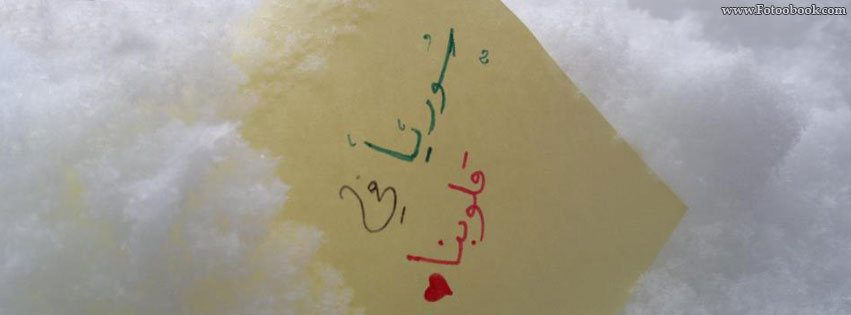 www.Fotoobook.com
سوريا
في
قلوبنا